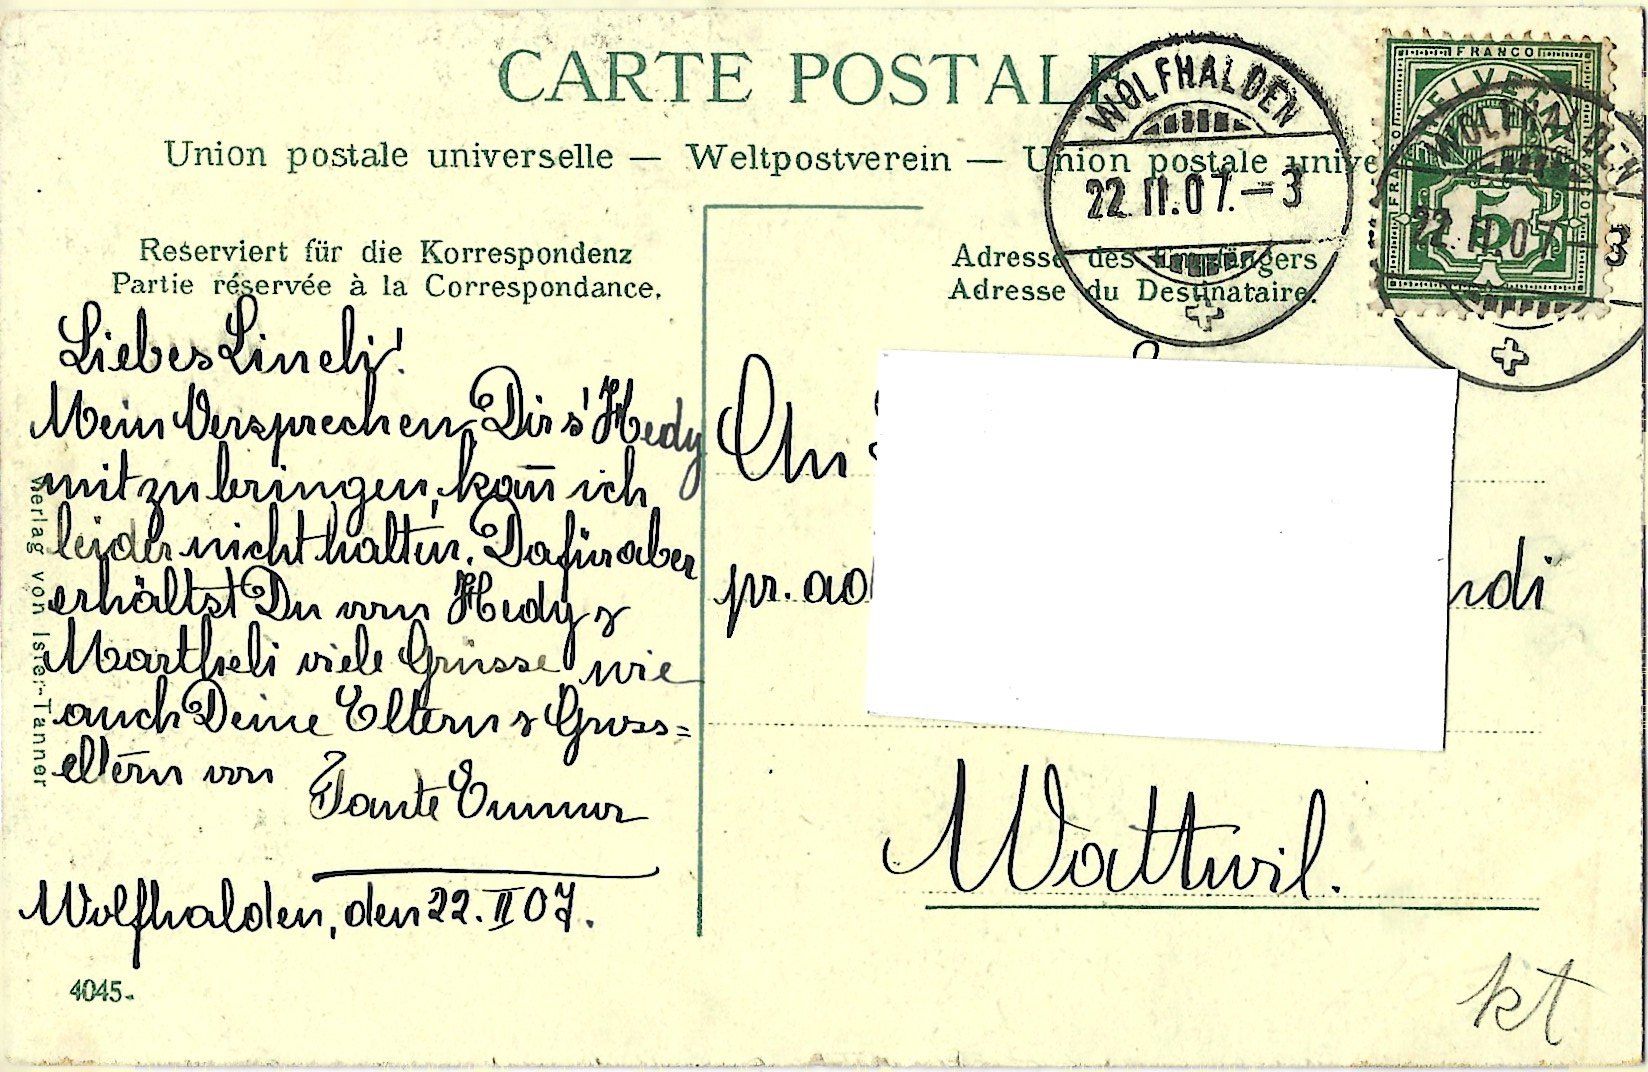 CARTE POSTALE
Union postale universelle — Weltpostverein — Union postale unive
Reserviert für die Korrespondenz
Partie réservée à la Correspondance.
Liebes Lineli!
Mein Versprechen, Dir s'Hedy
mitzubringen, kan̄ ich
leider nicht halten. Dafür aber
erhältst Du von Hedy &
Martheli viele Grüsse wie
auch Deine Eltern & Gross=
eltern von
Tante Emma
Wolfhalden, den 22. II 07.
4045.
Verlag von Isler-Tanner
WOLFHALDEN
22.II.07.–3
FRANCO
HELVETIA
5
WOLFHALDEN
22.II.07.–3
Adresse des Empfängers
Adresse du Destinataire.
An
pr. ad
ndi
Wattwil.
kt